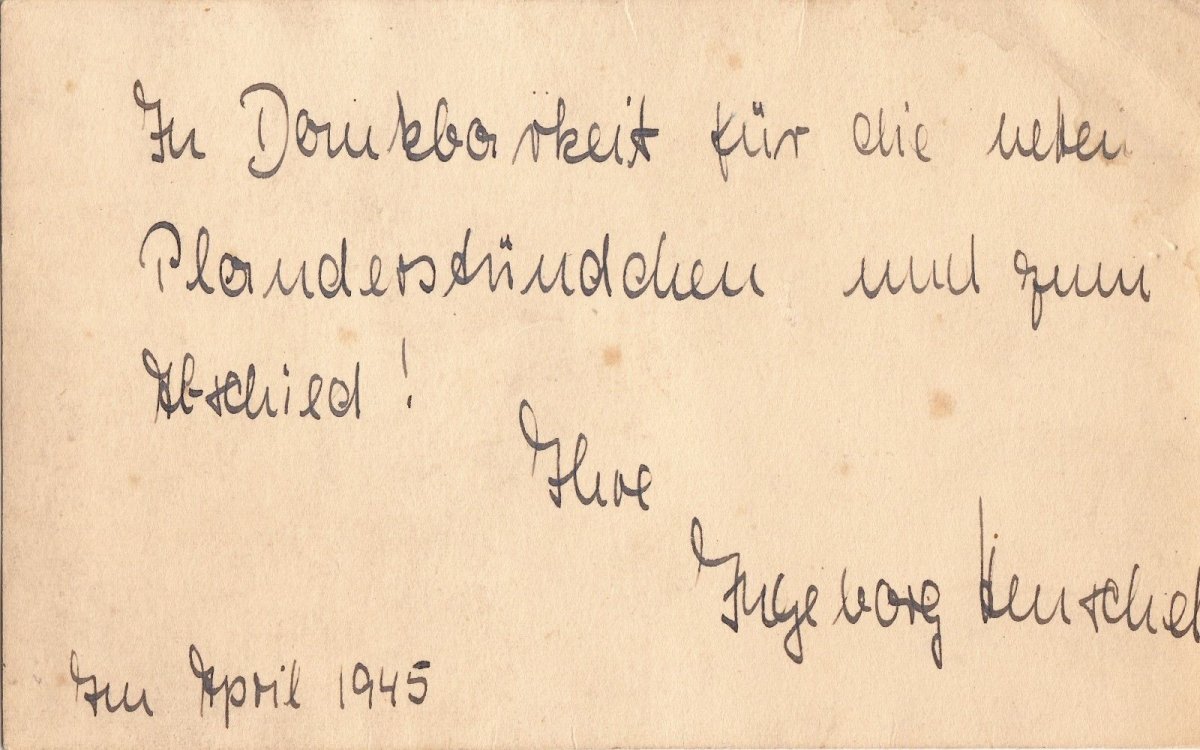 In Dankbarkeit für die netten
Plauderstündchen und zum
Abschied!
Ihre
Ingeborg Henschel
Im April 1945